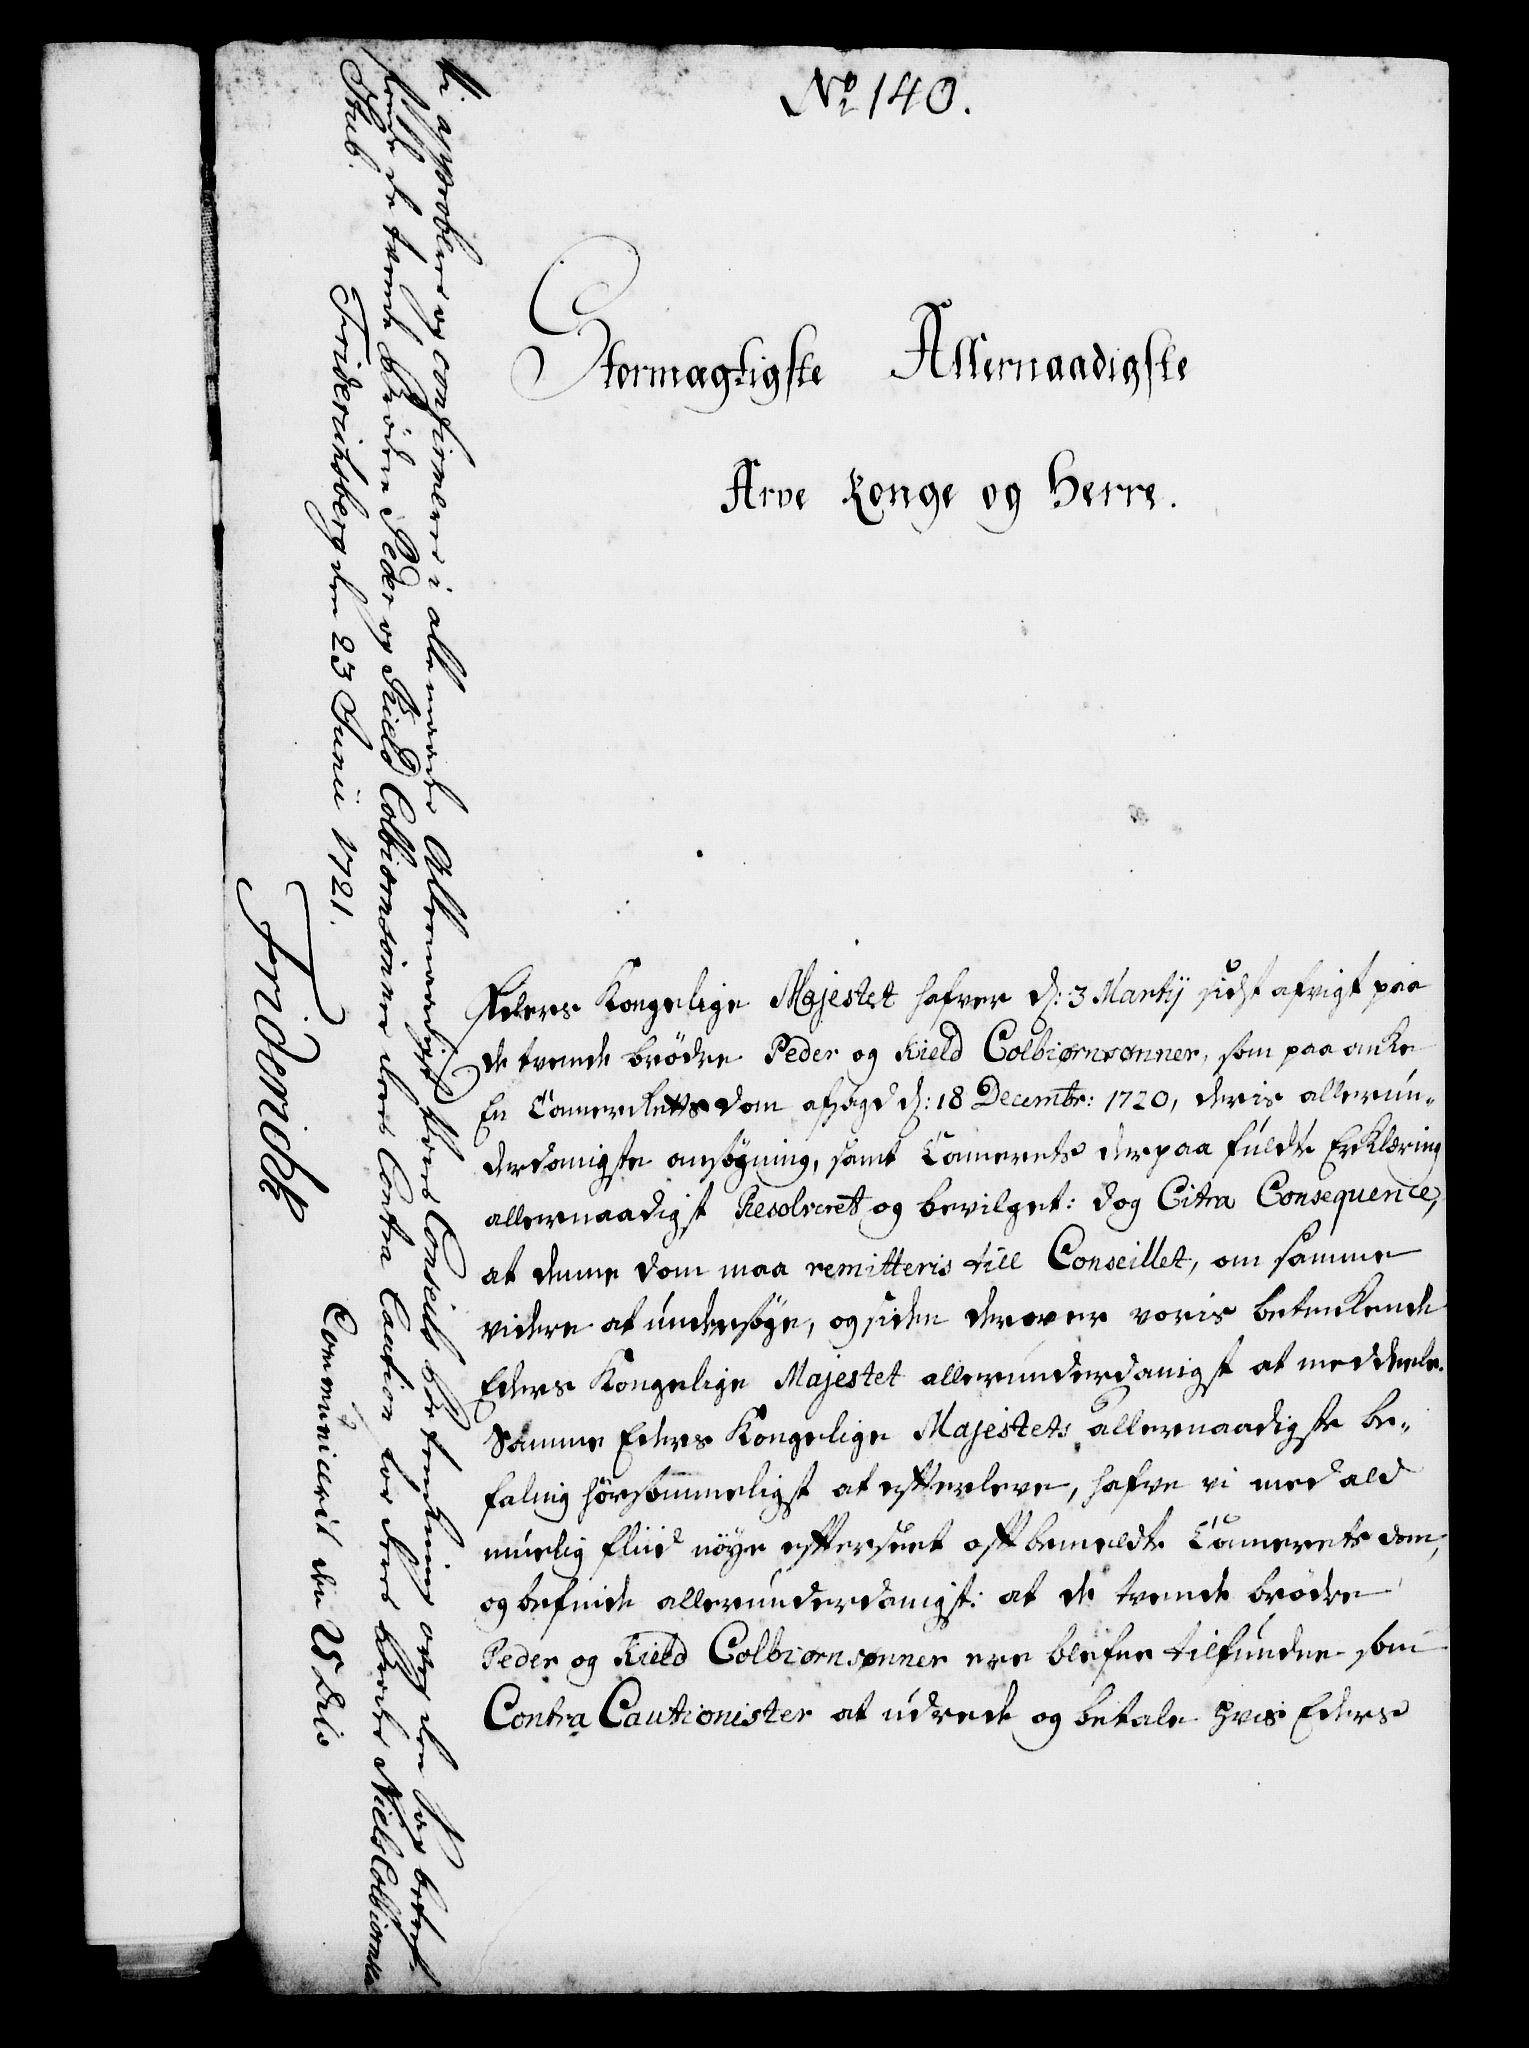 No 140.
Stormagtigste Allernaadigste
Arve Konge og Herre.
Eders Kongelige Majestet hafver d: 3 Martij sidst afvigt paa
de tvende brödre Peder og Kield Colbiørnsønner, som paa anke
En Camer Retts dom afsagd d: 18 Decembr: 1720, deris allerun„
derdanigste ansögning, samt Camerets derpaa fuldte Erklæring
allernaadigst Resolveret og bevilget: dog Citra Consequence,
at denne dom maa remitteris till Conseillet, om samme
videre at undersöge, og siden derover voris betenkende
Eders Kongelige Majestet allerunderdanigst at meddeele.
Samme Eders Kongelige Majestets allernaadigste be„
faling hörsommeligst at efterleve, hafve vi med ald
muelig fliid nöye efterseet oftbemeldte Camerets dom,
og befinde allerunderdanigst: at de tvende brödre
Peder og Kield Colbiørnsønner ere blefne tilfundne som
Contra Cautionister at udrede og betale hvis Eders
Vi approberer og confirmerer i alle maader Allernaadigst Vores Conseils betenkning over den Sag betref-
fende de tvende Brödre Peder og Kield Colbiørnsönner deres Contra Caution for deres Broder Niels Colbiørnsen
Stub.
Friderichsberg den 23 Junii 1721.
Friderich
Communicerit den